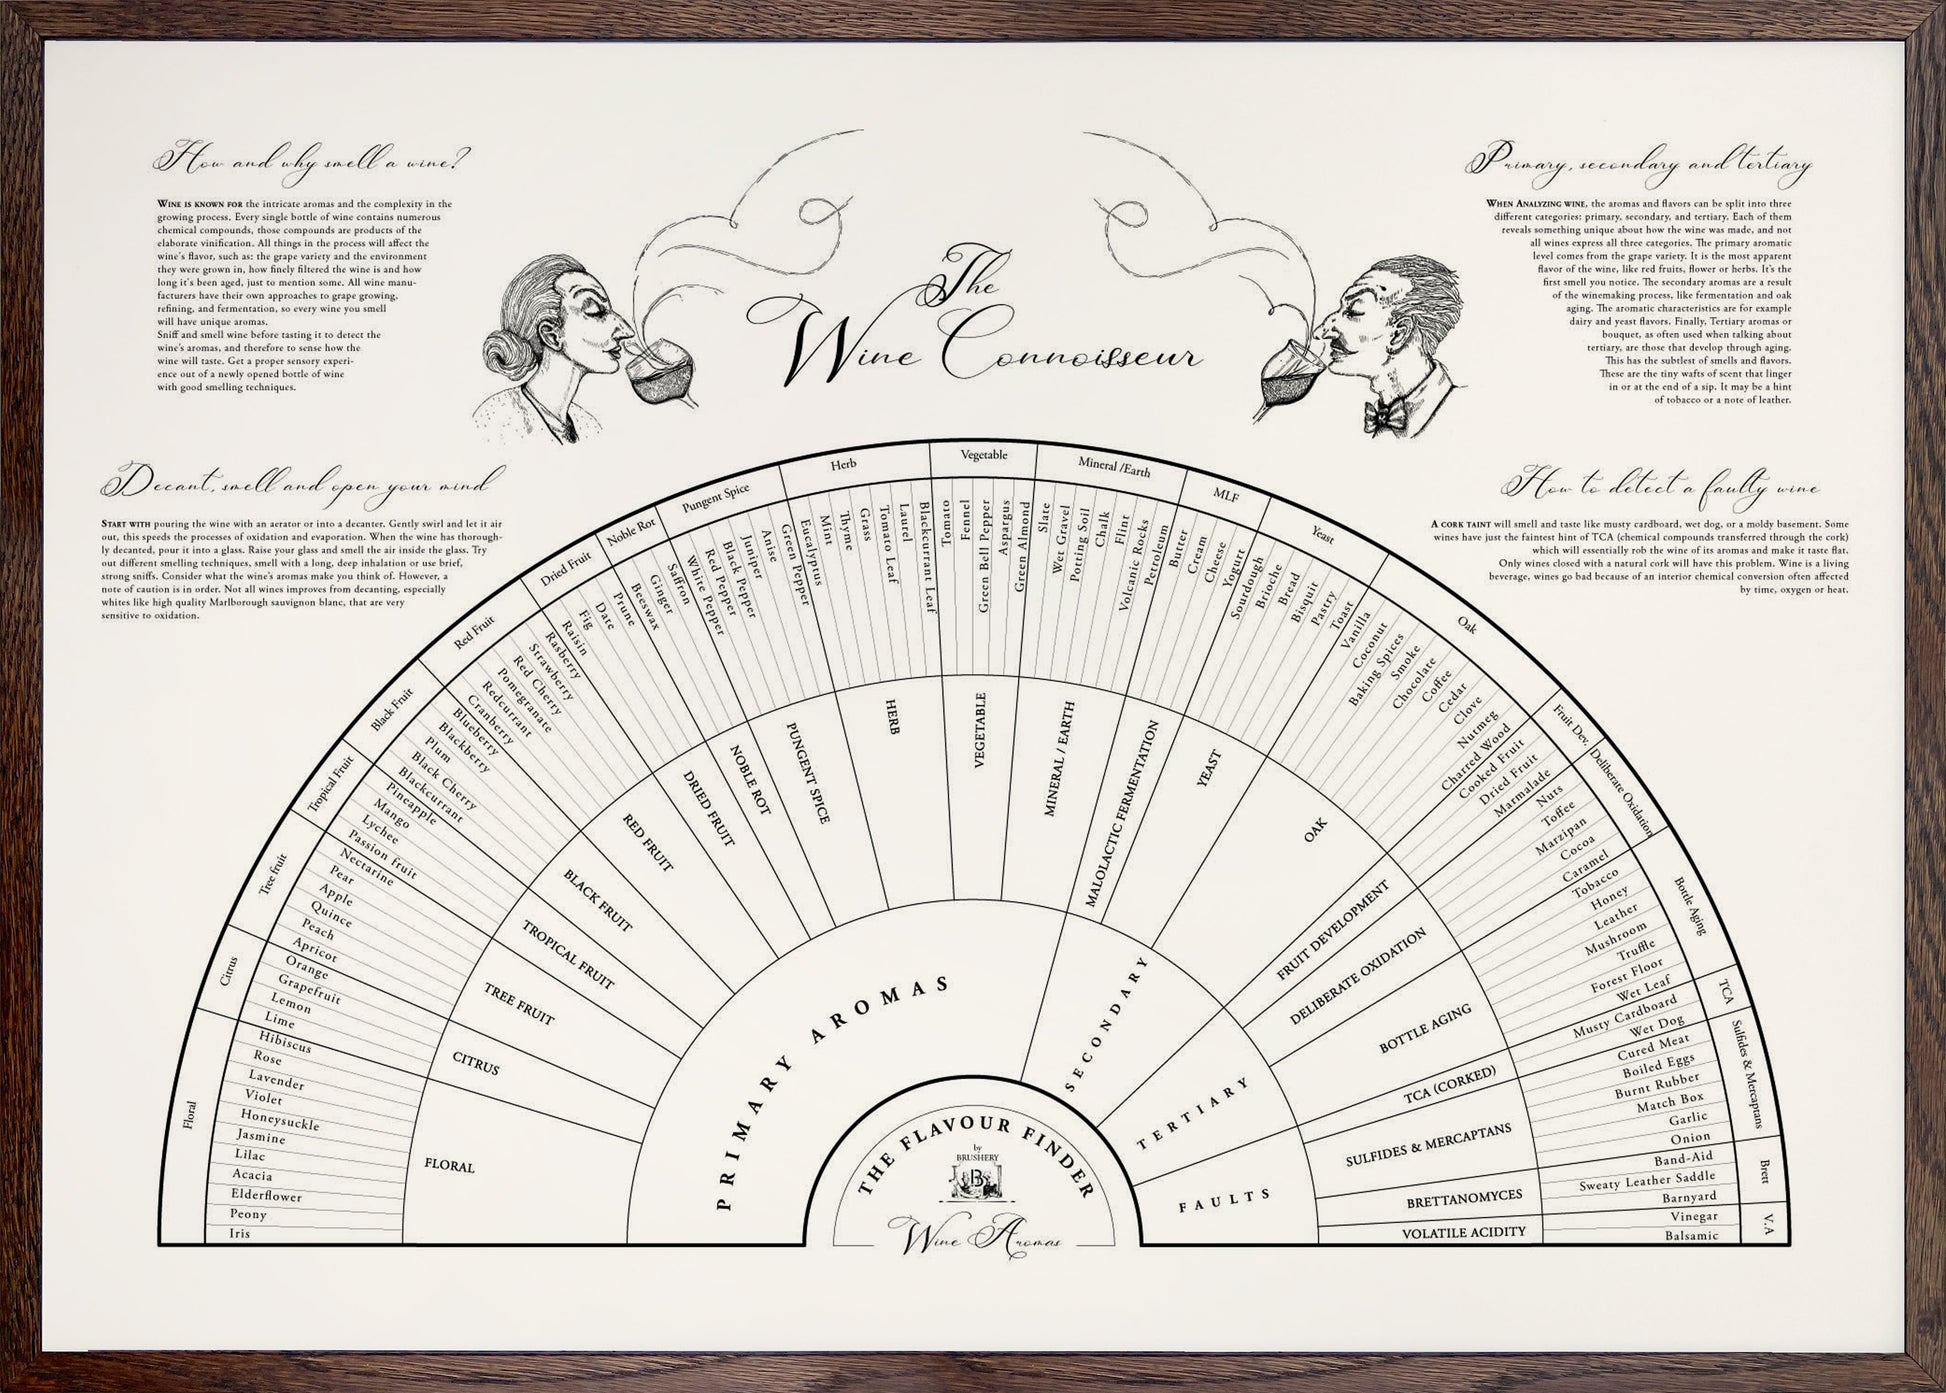 How and why smell a wine?
WINE IS KNOWN FOR the intricate aromas and the complexity in the
growing process. Every single bottle of wine contains numerous
chemical compounds, those compounds are products of the
elaborate vinification. All things in the process will affect the
wine's flavor, such as: the grape variety and the environment
they were grown in, how finely filtered the wine is and how
long it's been aged, just to mention some. All wine manu-
facturers have their own approaches to grape growing,
refining, and fermentation, so every wine you smell
will have unique aromas.
Sniff and smell wine before tasting it to detect the
wine's aromas, and therefore to sense how the
wine will taste. Get a proper sensory experi-
ence out of a newly opened bottle of wine
with good smelling techniques.
Primary, secondary and tertiary
WHEN ANALYZING WINE, the aromas and flavors can be split into three
different categories: primary, secondary, and tertiary. Each of them
reveals something unique about how the wine was made, and not
all wines express all three categories. The primary aromatic
level comes from the grape variety. It is the most apparent
flavor of the wine, like red fruits, flower or herbs. It's the
first smell you notice. The secondary aromas are a result
of the winemaking process, like fermentation and oak
aging. The aromatic characteristics are for example
dairy and yeast flavors. Finally, Tertiary aromas or
bouquet, as often used when talking about
tertiary, are those that develop through aging.
This has the subtlest of smells and flavors.
These are the tiny wafts of scent that linger
in or at the end of a sip. It may be a hint
of tobacco or a note of leather.
The
Wine Connoisseur
Decant, smell and open your mind
START WITH pouring the wine with an aerator or into a decanter. Gently swirl and let it air
out, this speeds the processes of oxidation and evaporation. When the wine has thorough-
ly decanted, pour it into a glass. Raise your glass and smell the air inside the glass. Try
out different smelling techniques, smell with a long, deep inhalation or use brief,
strong sniffs. Consider what the wine's aromas make you think of. However, a
note of caution is in order. Not all wines improves from decanting, especially
whites like high quality Marlborough sauvignon blanc, that are very
sensitive to oxidation.
How to detect a faulty wine
A CORK TAINT will smell and taste like musty cardboard, wet dog, or a moldy basement. Some
wines have just the faintest hint of TCA (chemical compounds transferred through the cork)
which will essentially rob the wine of its aromas and make it taste flat.
Only wines closed with a natural cork will have this problem. Wine is a living
beverage, wines go bad because of an interior chemical conversion often affected
by time, oxygen or heat.
Floral
Citrus
Tree fruit
Tropical Fruit
Black Fruit
Red Fruit
Dried Fruit
Noble Rot
Pungent Spice
Herb
Vegetable
Mineral /Earth
MLF
Yeast
Oak
Fruit Dev.
Deliberate Oxidation
Bottle Aging
TCA
Sulfides & Mercaptans
Brett
V.A
Iris
Peony
Elderflower
Acacia
Lilac
Jasmine
Honeysuckle
Violet
Lavender
Rose
Hibiscus
Lime
Lemon
Grapefruit
Orange
Apricot
Peach
Quince
Apple
Pear
Nectarine
Passion fruit
Lychee
Mango
Pineapple
Blackcurrant
Black Cherry
Plum
Blackberry
Blueberry
Cranberry
Redcurrant
Pomegranate
Red Cherry
Strawberry
Rasberry
Raisin
Fig
Date
Prune
Beeswax
Ginger
Saffron
White Pepper
Red Pepper
Black Pepper
Juniper
Anise
Green Pepper
Eucalyptus
Mint
Thyme
Grass
Tomato Leaf
Laurel
Blackcurrant Leaf
Tomato
Fennel
Green Bell Pepper
Aspargus
Green Almond
Slate
Wet Gravel
Potting Soil
Chalk
Flint
Volcanic Rocks
Petroleum
Butter
Cream
Cheese
Yogurt
Sourdough
Brioche
Bread
Bisquit
Pastry
Toast
Vanilla
Coconut
Baking Spices
Smoke
Chocolate
Coffee
Cedar
Clove
Nutmeg
Charred Wood
Cooked Fruit
Dried Fruit
Marmalade
Nuts
Toffee
Marzipan
Cocoa
Caramel
Tobacco
Honey
Leather
Mushroom
Truffle
Forest Floor
Wet Leaf
Musty Cardboard
Wet Dog
Cured Meat
Boiled Eggs
Burnt Rubber
Match Box
Garlic
Onion
Band-Aid
Sweaty Leather Saddle
Barnyard
Vinegar
Balsamic
FLORAL
CITRUS
TREE FRUIT
TROPICAL FRUIT
BLACK FRUIT
RED FRUIT
DRIED FRUIT
NOBLE ROT
PUNGENT SPICE
HERB
VEGETABLE
MINERAL / EARTH
MALOLACTIC FERMENTATION
YEAST
OAK
FRUIT DEVELOPMENT
DELIBERATE OXIDATION
BOTTLE AGING
TCA (CORKED)
SULFIDES & MERCAPTANS
BRETTANOMYCES
VOLATILE ACIDITY
PRIMARY AROMAS
SECONDARY
TERTIARY
FAULTS
THE FLAVOUR FINDER
by
BRUSHERY
B
Wine Aromas